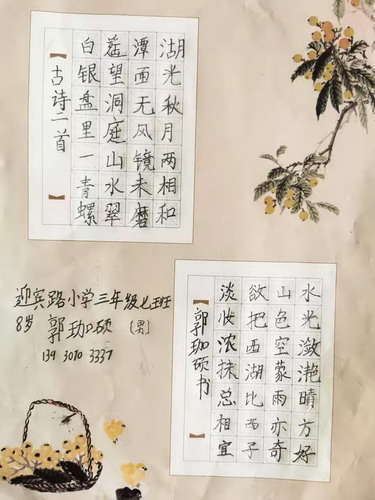 湖光秋月两相和
潭面无风镜未磨
遥望洞庭山水翠
白银盘里一青螺
古诗二首
迎宾路小学三年级七班
8岁 郭珈硕 (男)
139 3070 3337
水光潋滟晴方好
山色空蒙雨亦奇
欲把西湖比西子
淡妆浓抹总相宜
郭珈硕书